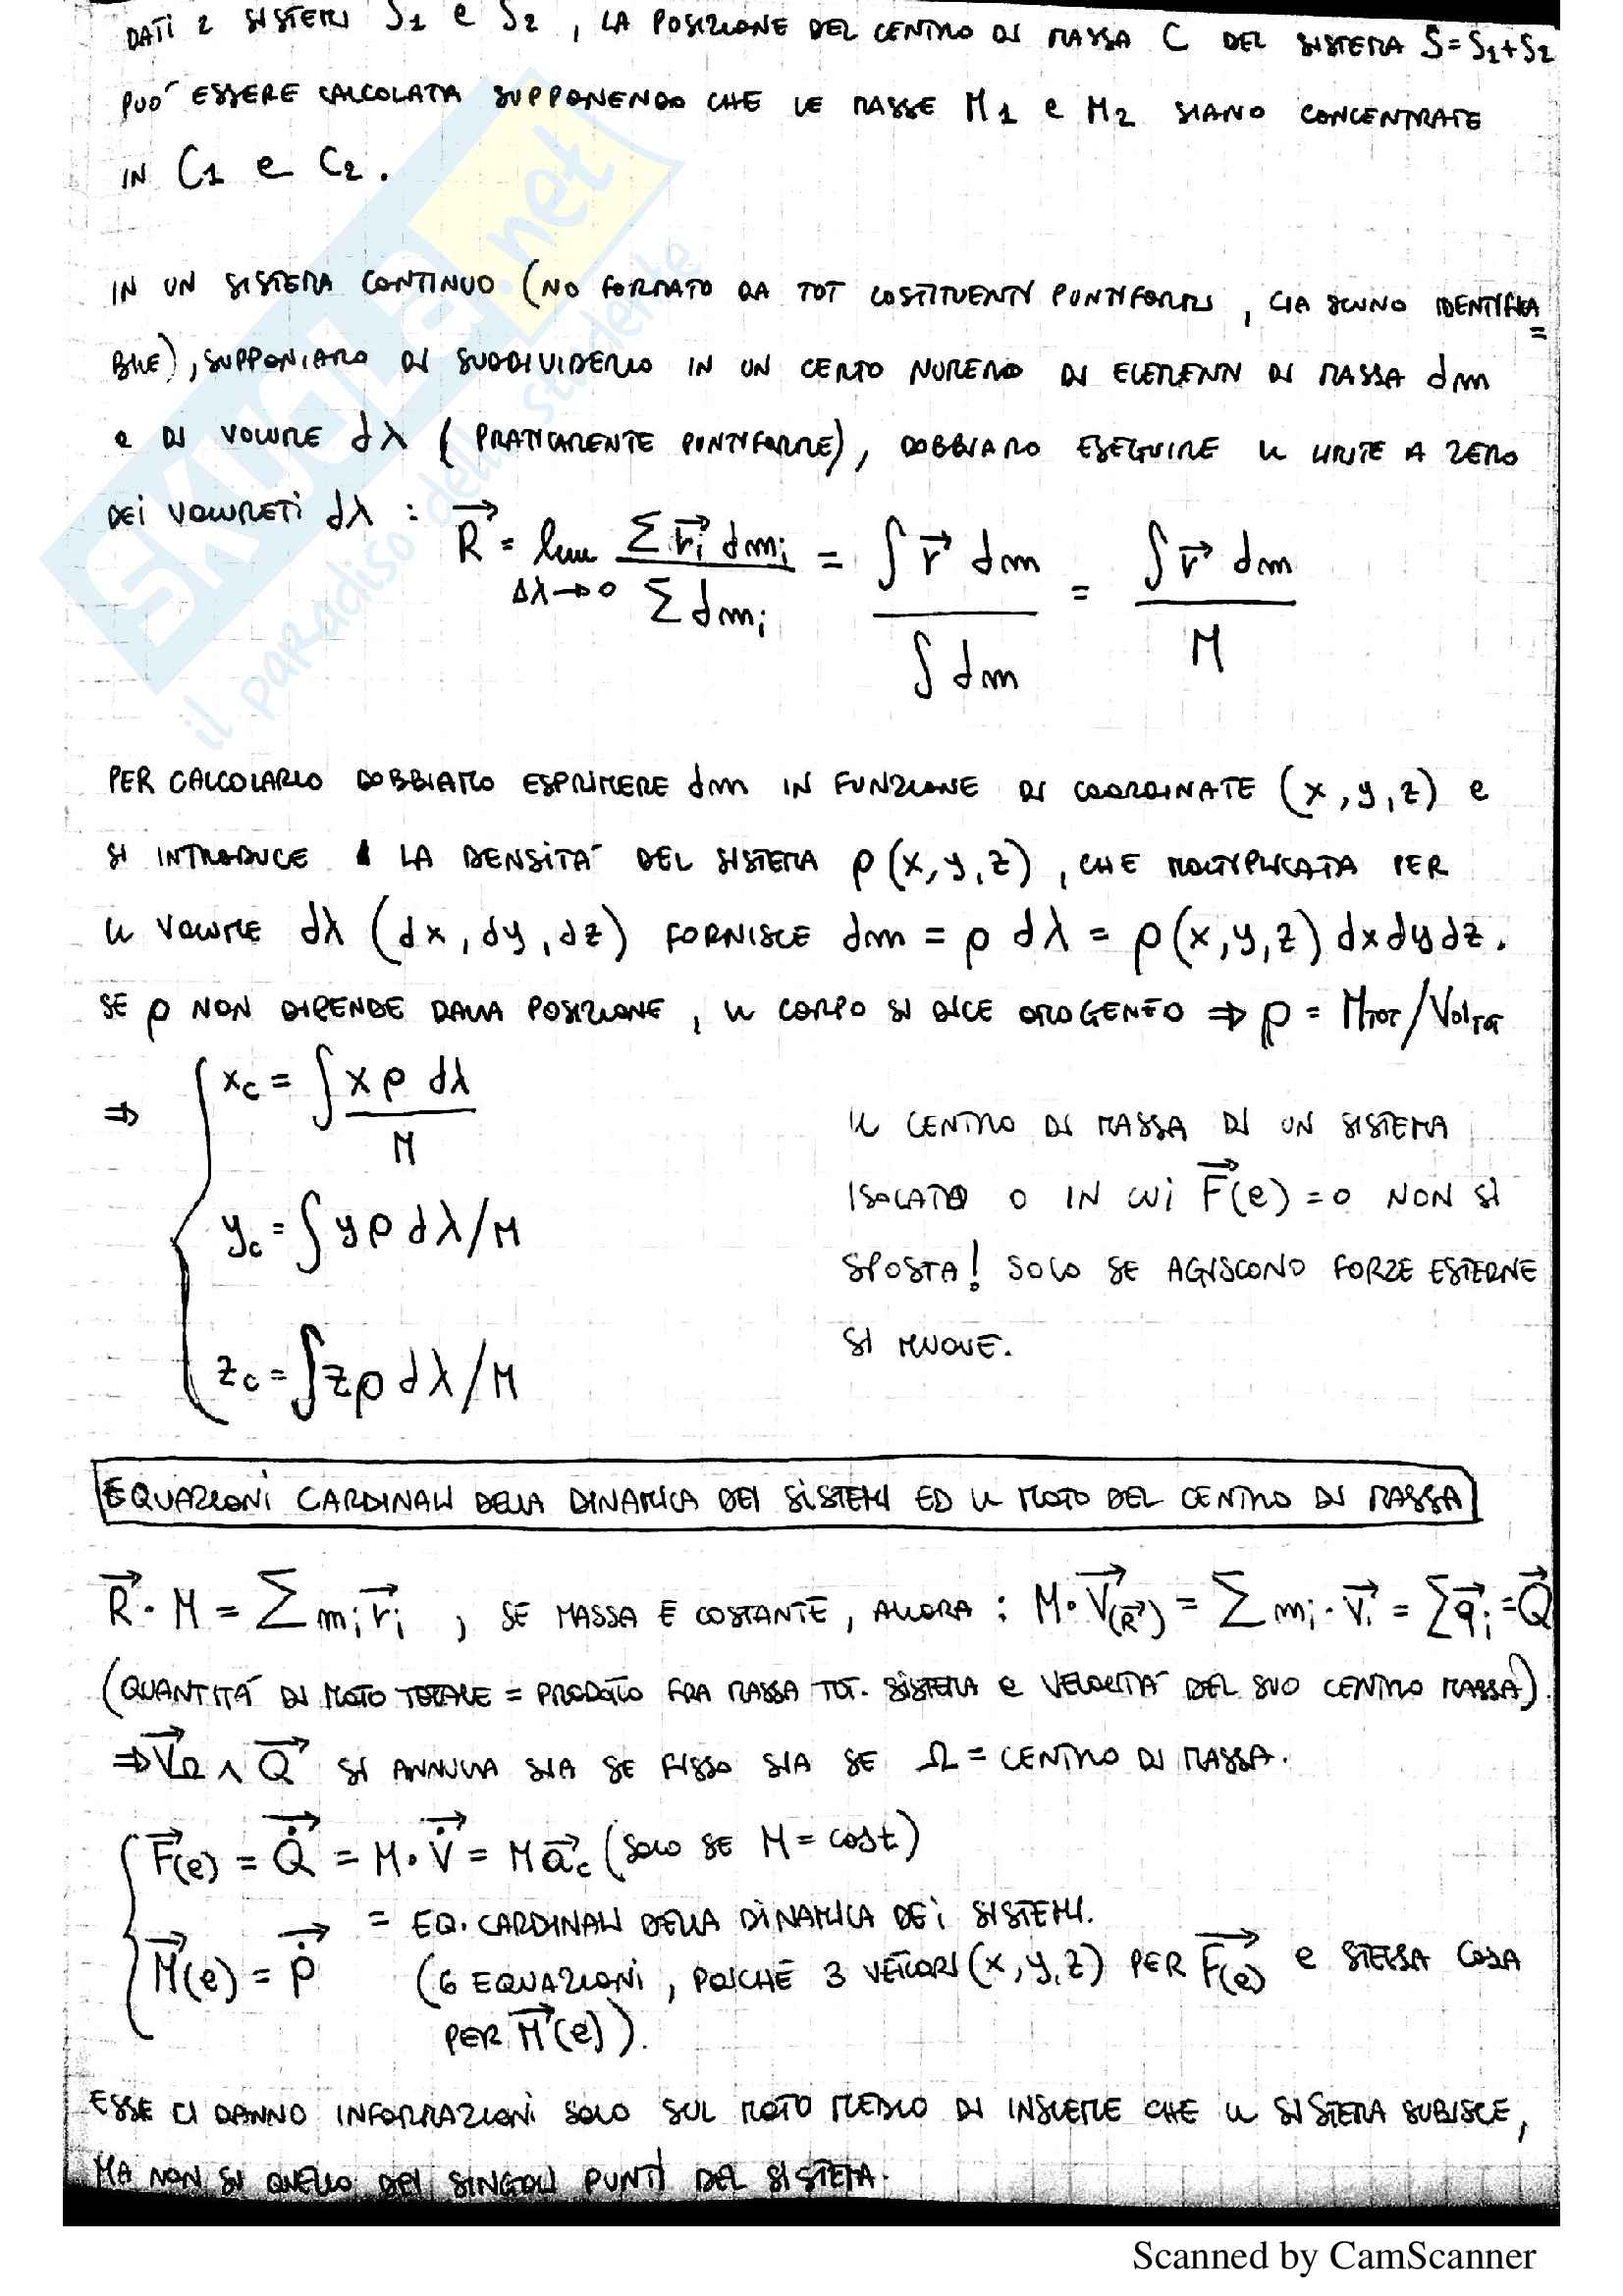 DATI 2 SISTEMI S1 e S2, LA POSIZIONE DEL CENTRO DI MASSA C DEL SISTEMA S=S1+S2
PUO' ESSERE CALCOLATA SUPPONENDO CHE LE MASSE M1 e M2 SIANO CONCENTRATE
IN C1 e C2.
IN UN SISTEMA CONTINUO (NO FORMATO DA TOT COSTITUENTI PUNTIFORMI, CIASCUNO IDENTIFICA=
BILE), SUPPONIAMO DI SUDDIVIDERLO IN UN CERTO NUMERO DI ELEMENTI DI MASSA dm
e DI VOLUME dλ (PRATICAMENTE PUNTIFORME), DOBBIAMO ESEGUIRE IL LIMITE A ZERO
DEI VOLUMETI dλ : R⃗ = lim Δλ→0 Σ r⃗i dmi / Σ dmi = ∫ r⃗ dm / ∫ dm = ∫ r⃗ dm / M
PER CALCOLARLO DOBBIAMO ESPRIMERE dm IN FUNZIONE DI COORDINATE (x, y, z) e
SI INTRODUCE LA DENSITA' DEL SISTEMA ρ(x, y, z), CHE MOLTIPLICATA PER
IL VOLUME dλ (dx, dy, dz) FORNISCE dm = ρ dλ = ρ(x, y, z) dxdydz.
SE ρ NON DIPENDE DALLA POSIZIONE, IL CORPO SI DICE OMOGENEO ⇒ ρ = MTOT/VolTOT
⇒ { xc = ∫ x ρ dλ / M
yc = ∫ y ρ dλ/M
zc = ∫ z ρ dλ/M
IL CENTRO DI MASSA DI UN SISTEMA
ISOLATO O IN CUI F⃗(e) = 0 NON SI
SPOSTA! SOLO SE AGISCONO FORZE ESTERNE
SI MUOVE.
EQUAZIONI CARDINALI DELLA DINAMICA DEI SISTEMI ED IL MOTO DEL CENTRO DI MASSA
R⃗ · M = Σ mi r⃗i , SE MASSA È COSTANTE, ALLORA : M · V⃗(R⃗) = Σ mi · v⃗i = Σ q⃗i = Q⃗
(QUANTITÁ DI MOTO TOTALE = PRODOTTO FRA MASSA TOT. SISTEMA e VELOCITÁ DEL SUO CENTRO MASSA).
⇒ V⃗Ω ∧ Q⃗ SI ANNULLA SIA SE FISSO SIA SE Ω = CENTRO DI MASSA.
{ F⃗(e) = Q⃗̇ = M · V⃗̇ = M a⃗c (SOLO SE M = cost)
= EQ. CARDINALI DELLA DINAMICA DEI SISTEMI.
M⃗(e) = p⃗̇ (6 EQUAZIONI, POICHÈ 3 VETTORI (x, y, z) PER F⃗(e) e STESSA COSA
PER M⃗(e)).
ESSE CI DANNO INFORMAZIONI SOLO SUL MOTO MEDIO DI INSIEME CHE IL SISTEMA SUBISCE,
MA NON SI QUELLO DEI SINGOLI PUNTI DEL SISTEMA.
SKUOLA.net
il paradiso dello studente
Scanned by CamScanner